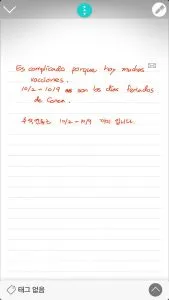 Es complicado porque hay muchas
vacciones.
10/2 - 10/9 son los días feriados
de Corea.
추석 연휴는 10/2 - 10/9 까지 입니다.
태그 없음